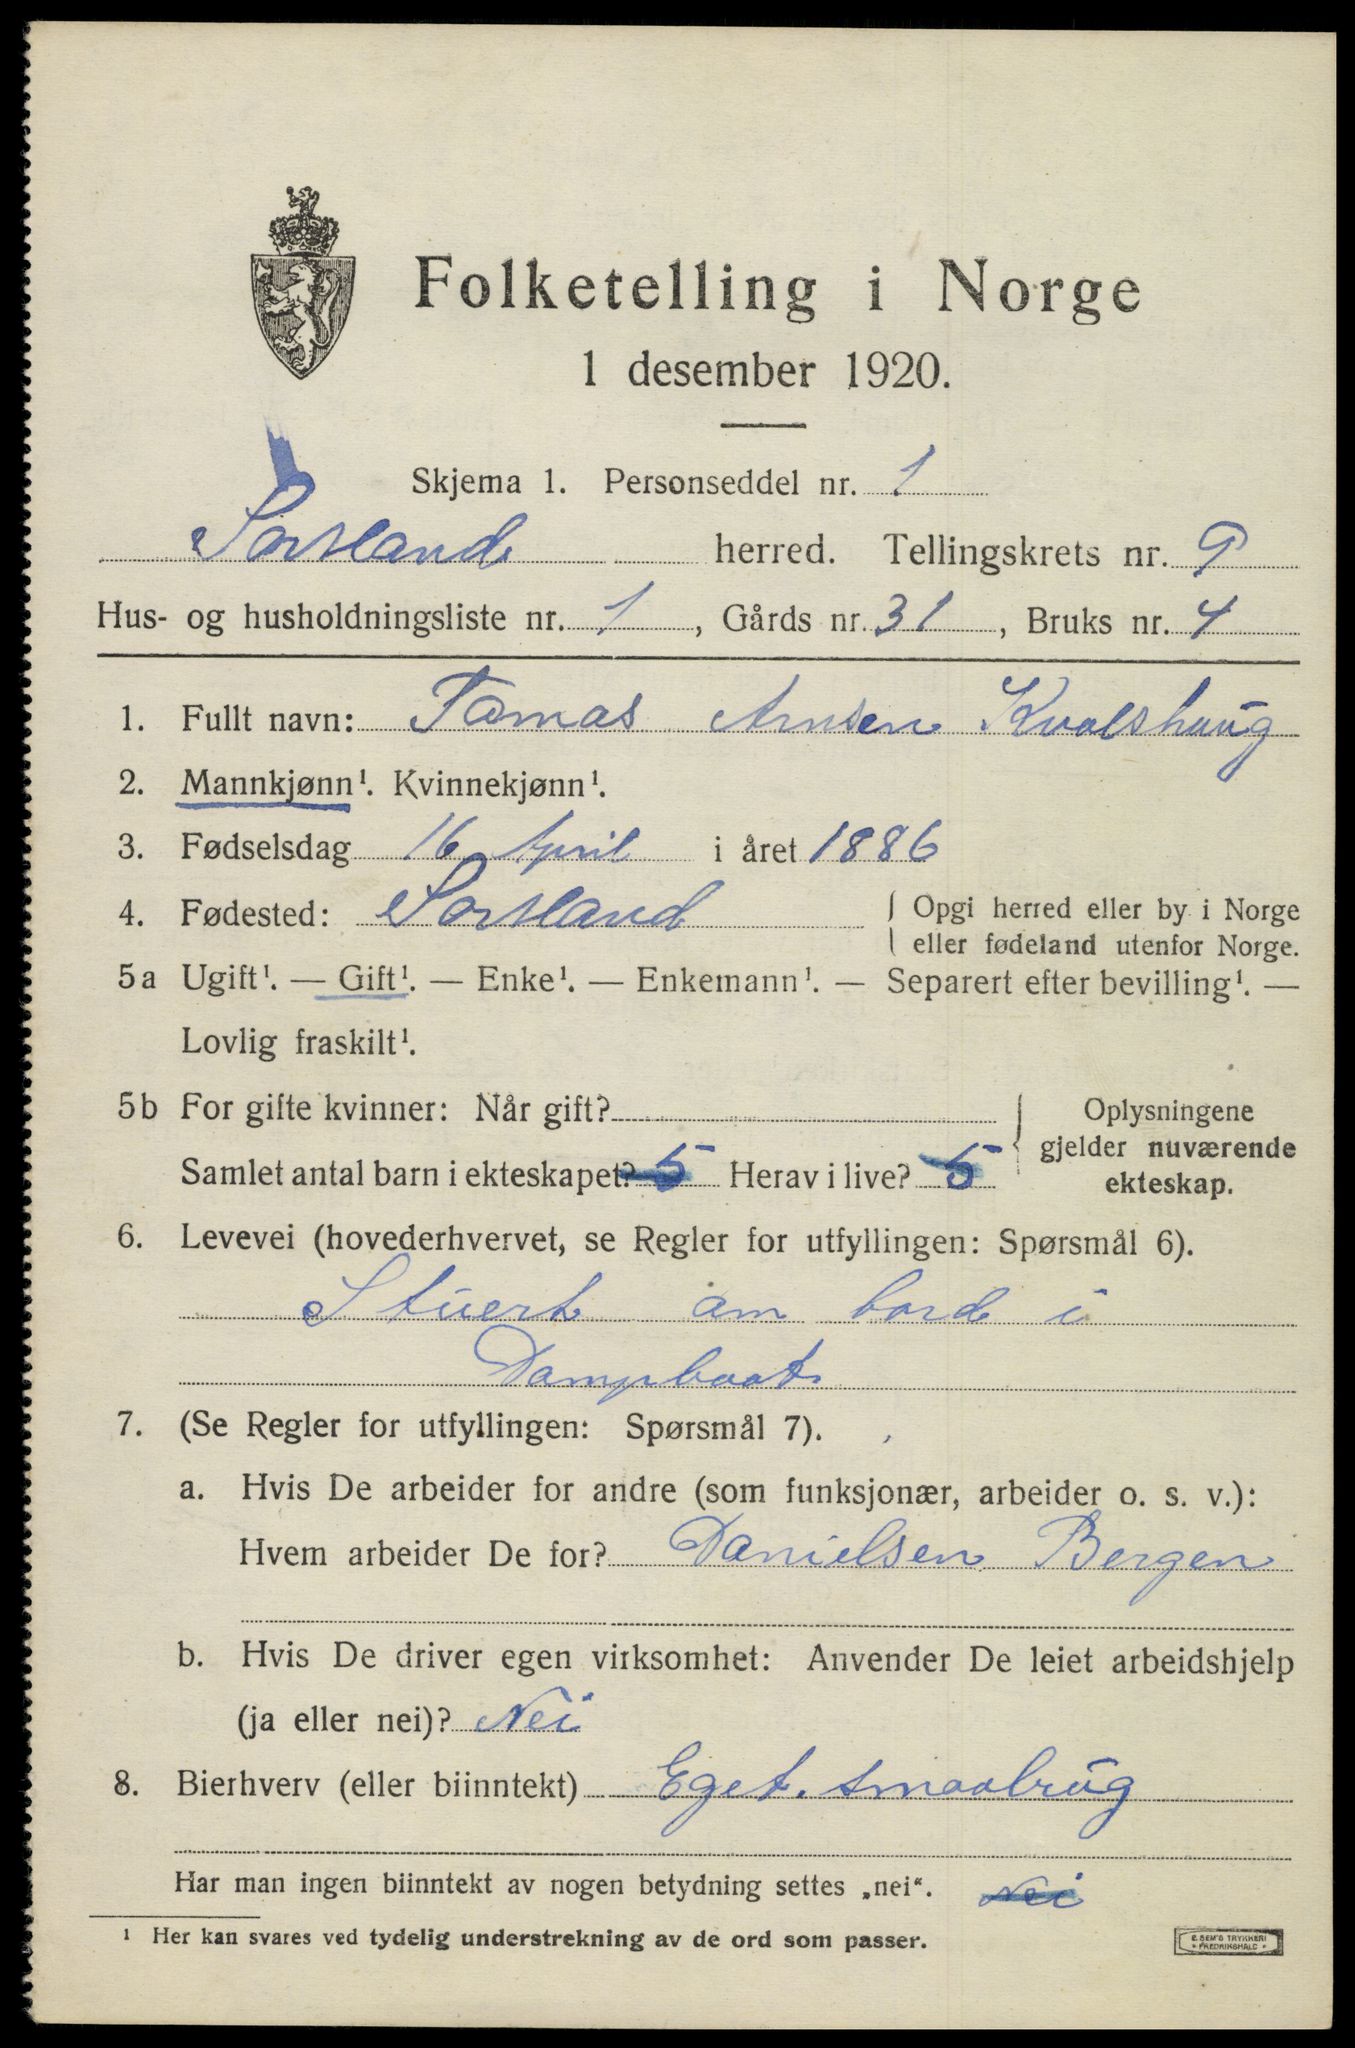 Folketelling i Norge
1 desember 1920.
Skjema 1. Personseddel nr. 1
Sortland herred. Tellingskrets nr. 9
Hus- og husholdningsliste nr. 1, Gårds nr. 31, Bruks nr. 4
1. Fullt navn: Tomas Arnsen Kvalshaug
2. Mannkjønn¹. Kvinnekjønn¹.
3. Fødselsdag 16 April i året 1886
4. Fødested: Sortland { Opgi herred eller by i Norge
eller fødeland utenfor Norge.
5a Ugift¹. — Gift¹. — Enke¹. — Enkemann¹. — Separert efter bevilling¹. —
Lovlig fraskilt¹.
5b For gifte kvinner: Når gift? { Oplysningene
gjelder nuværende
Samlet antal barn i ekteskapet? 5 Herav i live? 5 ekteskap.
6. Levevei (hovederhvervet, se Regler for utfyllingen: Spørsmål 6).
Stuert om bord i
Dampbaat
7. (Se Regler for utfyllingen: Spørsmål 7).
a. Hvis De arbeider for andre (som funksjonær, arbeider o. s. v.):
Hvem arbeider De for? Danielsen Bergen
b. Hvis De driver egen virksomhet: Anvender De leiet arbeidshjelp
(ja eller nei)? Nei
8. Bierhverv (eller biinntekt) Eget. smaabrug
Har man ingen biinntekt av nogen betydning settes „nei“. Nei
¹ Her kan svares ved tydelig understrekning av de ord som passer.
E. SEM'S TRYKKERI
FREDRIKSHALD